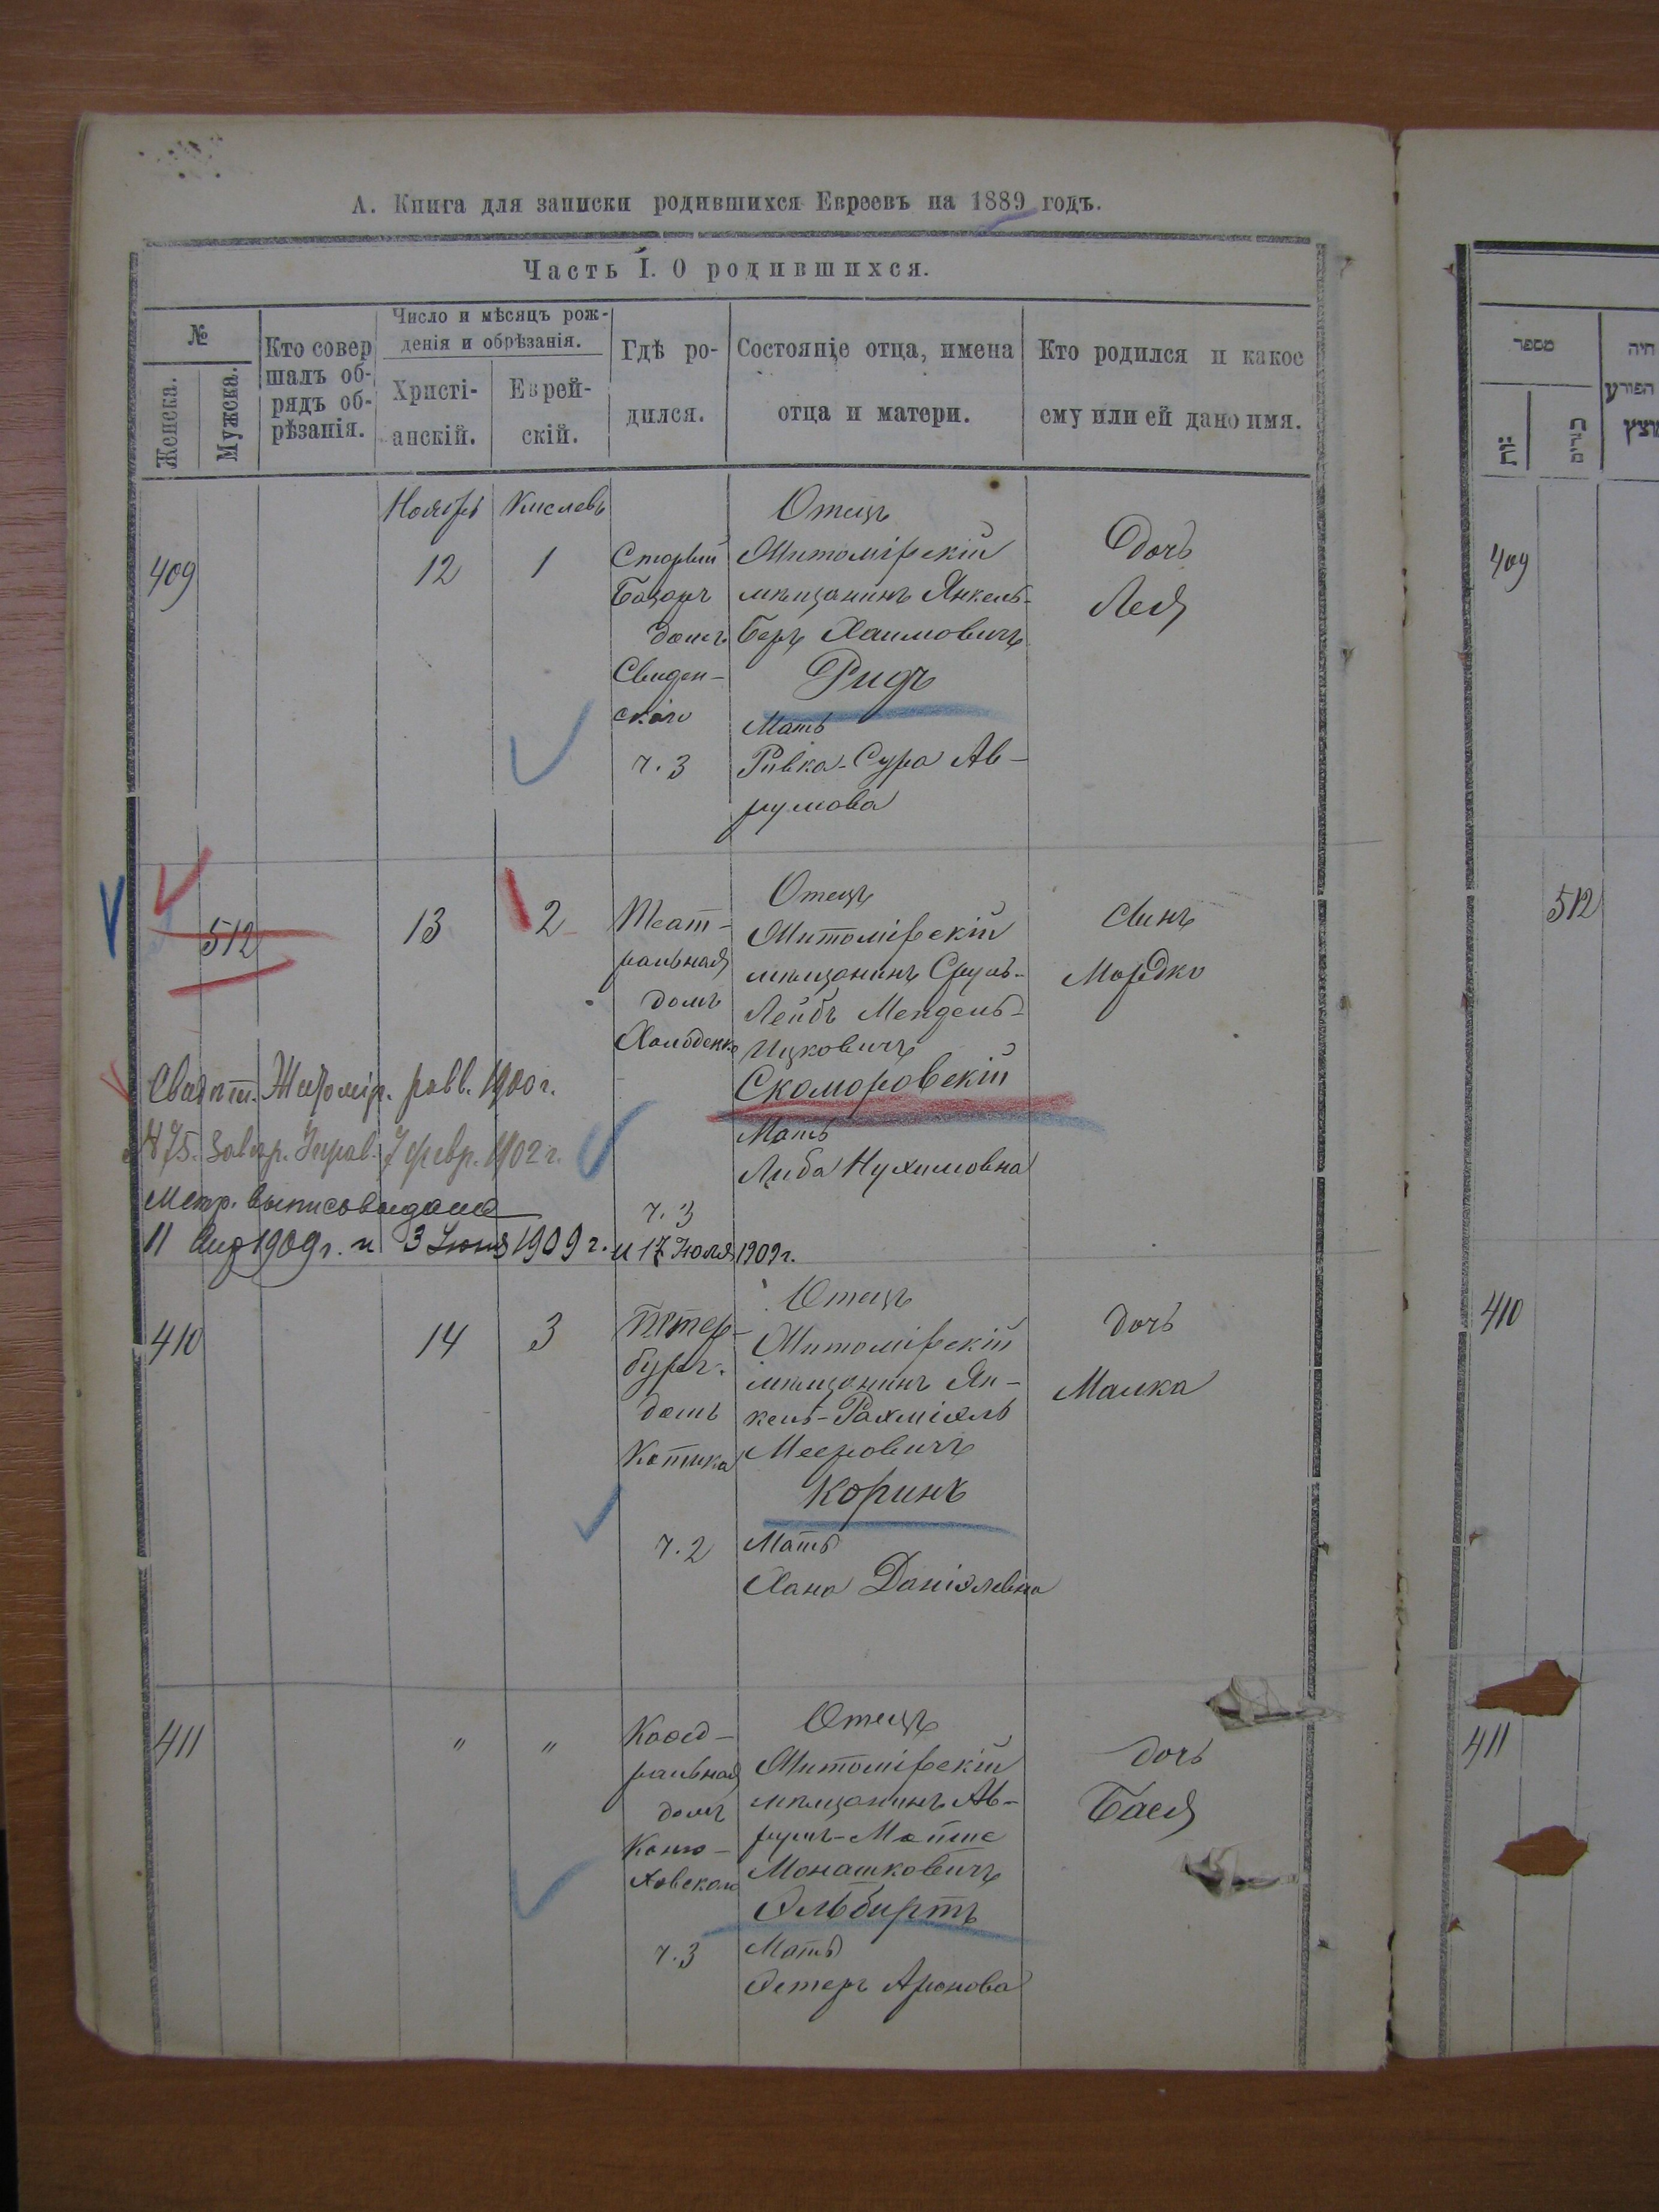 А. Книга для записки родившихся Евреевъ на 1889 годъ.
Часть I. О родившихся.
№
Женска.
Мужска.
Кто совер
шалъ об-
рядъ об-
рѣзанія.
Число и мѣсяцъ рож-
денія и обрѣзанія.
Христі-
анскій.
Еврей-
скій.
Гдѣ ро-
дился.
Состояніе отца, имена
отца и матери.
Кто родился и какое
ему или ей дано имя.
409
Ноябрь
12
Кислевъ
1
Старый
Базаръ
домъ
Свиден-
скаго
ч. 3
Отецъ
Житомірскій
мѣщанинъ Янкель-
Беръ Хаимовичъ
Ридъ
Мать
Ривка-Сура Ав-
румова
Дочь
Лея
512
13
2
Теат-
ральная
домъ
Холоденко
ч. 3
Отецъ
Житомірскій
мѣщанинъ Сруль-
Лейбъ Мендель-
Ицковичъ
Скоморовскій
Мать
Либа Нухимовна
Сынъ
Мордко
Житомір. равв. 1900 г.
475. Завѣр. Губ. Прав. 7 февр. 1902 г.
Метр. выпись выдана
11 1909 г. и 3 Іюня 1909 г. и 17 Іюля 1909 г.
410
14
3
Петер-
бург.
домъ
Котика
ч. 2
Отецъ
Житомірскій
мѣщанинъ Ян-
кель-Рахміэль
Мееровичъ
Коринъ
Мать
Хана Даніэлевна
дочь
Малка
411
"
"
Каѳед-
ральная
домъ
ч. 3
Отецъ
Житомірскій
мѣщанинъ Ав-
румъ-Мойше
Монашковичъ
Эльбиртъ
Мать
Эстеръ Аронова
дочь
Бася
מספר
409
512
410
411